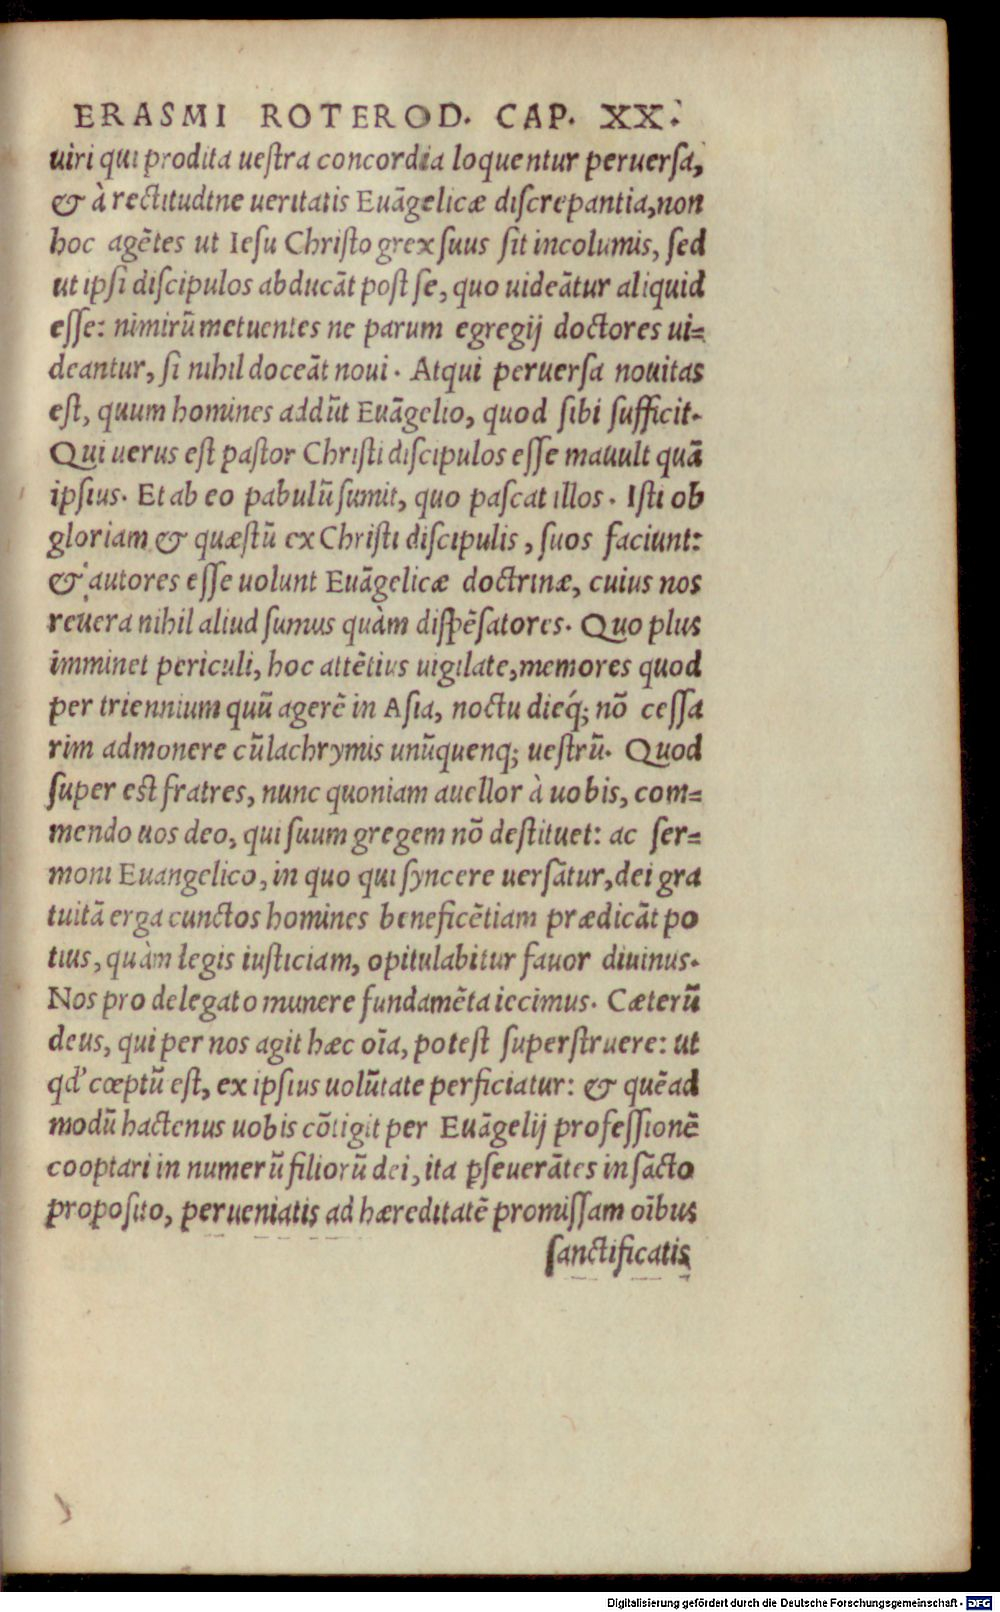 ERASMI ROTEROD. CAP. XX.
uiri qui prodita uestra concordia loquentur peruersa,
& à rectitudtne ueritatis Euãgelicæ discrepantia, non
hoc agẽtes ut Iesu Christo grex suus sit incolumis, sed
ut ipsi discipulos abducãt post se, quo uideãtur aliquid
esse: nimirũ metuentes ne parum egregij doctores ui=
deantur, si nihil doceãt noui. Atqui peruersa nouitas
est, quum homines addũt Euãgelio, quod sibi sufficit.
Qui uerus est pastor Christi discipulos esse mauult quã
ipsius. Et ab eo pabulũ sumit, quo pascat illos. Isti ob
gloriam & quæstũ ex Christi discipulis, suos faciunt:
& autores esse uolunt Euãgelicæ doctrinæ, cuius nos
reuera nihil aliud sumus quàm dispẽsatores. Quo plus
imminet periculi, hoc attẽtius uigilate, memores quod
per triennium quũ agerẽ in Asia, noctu dieq́; nõ cessa
rim admonere cũ lachrymis unũquenq; uestrũ. Quod
super est fratres, nunc quoniam auellor à uobis, com=
mendo uos deo, qui suum gregem nõ destituet: ac ser=
moni Euangelico, in quo qui syncere uersãtur, dei gra
tuitã erga cunctos homines beneficẽtiam prædicãt po
tius, quàm legis iusticiam, opitulabitur fauor diuinus.
Nos pro delegato munere fundamẽta iecimus. Cæterũ
deus, qui per nos agit hæc oĩa, potest superstruere: ut
qd’ cœptũ est, ex ipsius uolũtate perficiatur: & quẽad
modũ hactenus uobis cõtigit per Euãgelij professionẽ
cooptari in numerũ filiorũ dei, ita ꝑseuerãtes in sãcto
proposito, perueniatis ad hæreditatẽ promissam oĩbus
sanctificatis
Digitalisierung gefördert durch die Deutsche Forschungsgemeinschaft - DFG